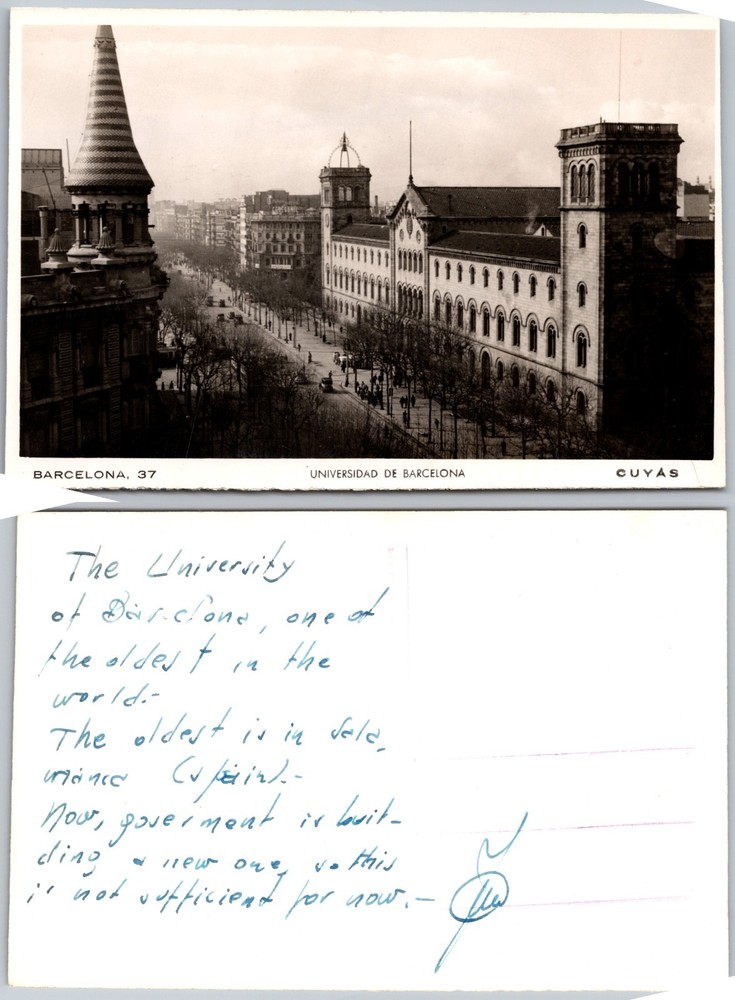 BARCELONA, 37 UNIVERSIDAD DE BARCELONA CUYÁS
The University
of Barcelona, one of
the oldest in the
world.-
The oldest is in Sala,
manca (spain).-
Now, goverment is buil-
ding a new one, so this
is not sufficient for now.-